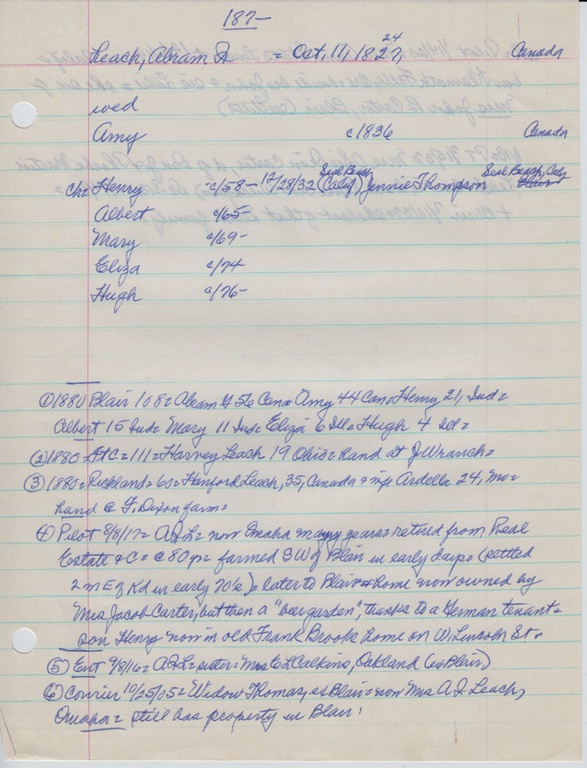 187-
24
Leach, Abram = Oct, 11, 1827, Canada
wed
Amy c1836 Canada
Seal Beach Seal Beach, Calif
ch= Henry c/58 - 12/28/32 (Calif) Jennie Thompson Blair
Albert c/65-
Mary c/69-
Eliza c/74
Hugh c/76-
① 1880 Blair 108= Abram G 56 Can= Amy 44 Can= Henry 21, Ind=
Albert 15 Ind= Mary 11 Ind= Eliza 6 Ill= Hugh 4 Ill=
② 1880= = 111= Harvey Leach 19 Ohio= hand at J W ranch=
③ 1880= Richland= 60= Hanford Leach, 35, Canada & wife Ardella 24, Mo=
hand @ F. Dixon farm=
④ Pilot 8/8/17= A I L= now Omaha many years= retired from Real
Estate & C= @ 80 yr= farmed SW of Blair in early days= (settled
2 m E of Kd in early 70's)= later to Blair= home now owned by
Mrs Jacob Carter, but then a "beer garden", thanks to a German tenant=
son Henry now in old Frank Brooks home on W. Lincoln St=
⑤ Ent 9/8/16= A I L= sister= Mrs E L Calkins, Oakland (ex Blair)
⑥ Courier 10/25/05= Widow Thomas, ex Blair= now Mrs A I Leach,
Omaha= still has property in Blair: